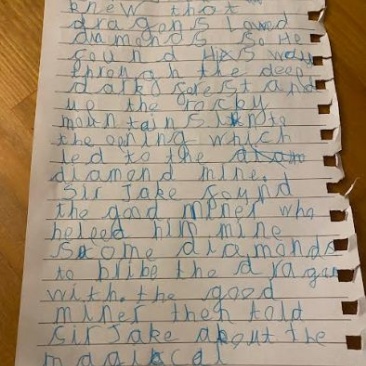 knew that
dragons loved
diamonds so He
found His way
through the deep
dark forest and
up the rocky
mountains into
the opning which
led to the
diamond mine.
Sir Jake found
the good miner who
helped him mine
some diamonds
to bribe the dragon
with. the good
miner then told
Sir Jake about the
magical